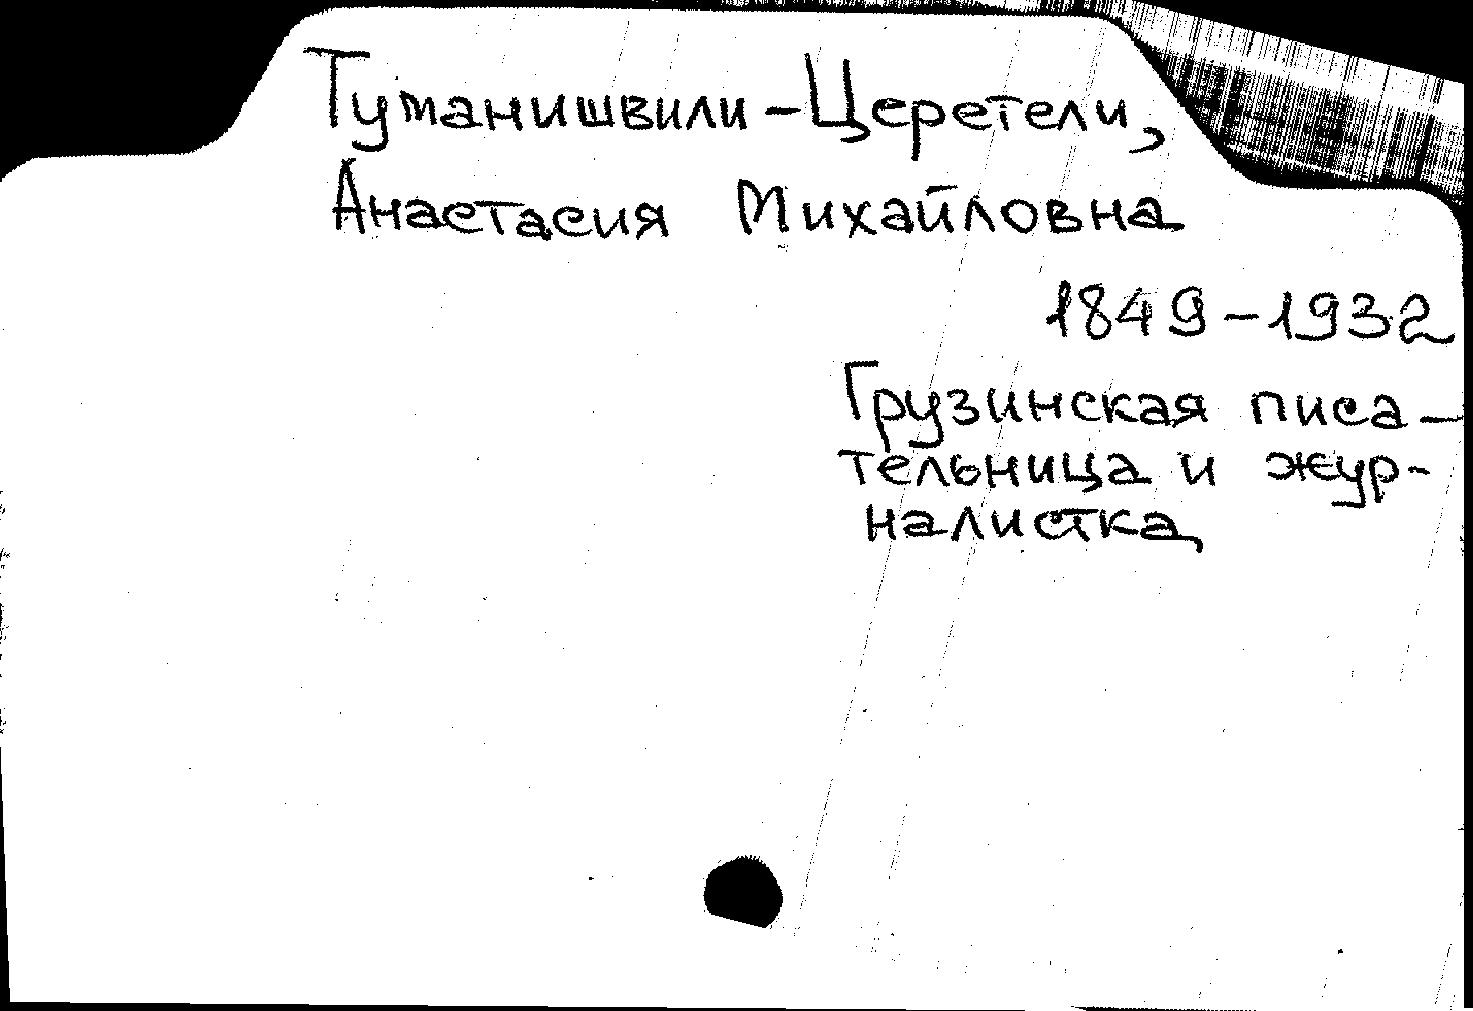 Туманишвили-Церетели,
Анастасия Михайловна
1849-1932
Грузинская писа-
тельница и жур-
налистка